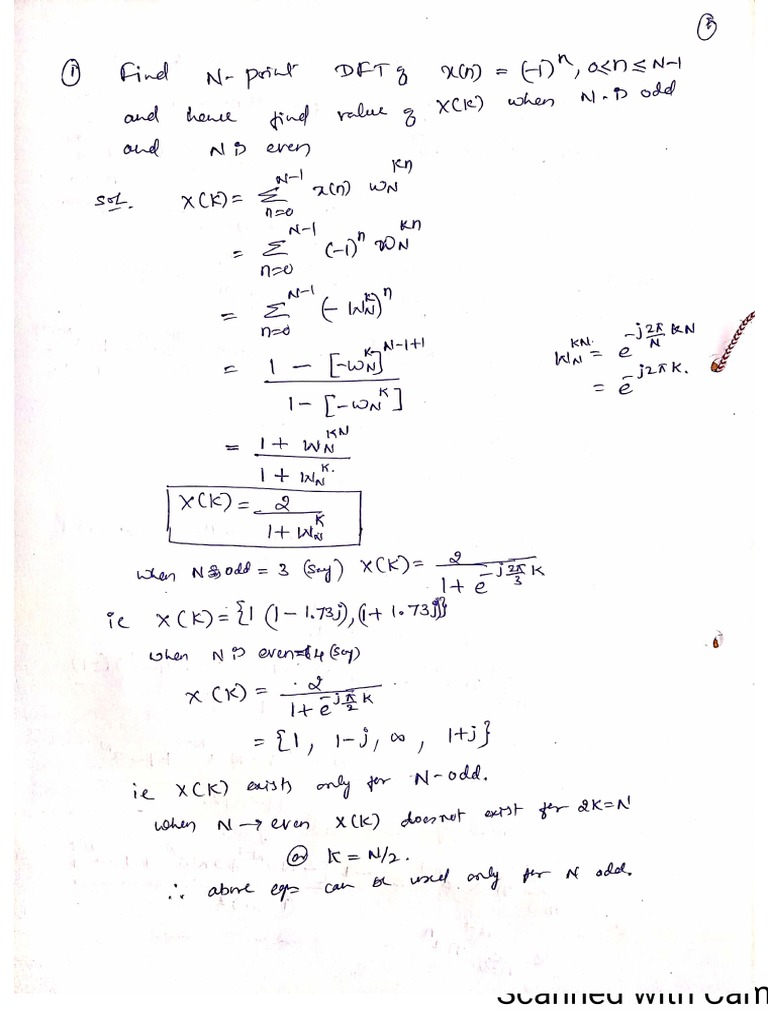 5
① Find N-point DFT of x(n) = (-1)^n, 0≤n≤N-1
and hence find value of X(K) when N is odd
and N is even
Sol. X(K) = Σ_{n=0}^{N-1} x(n) W_N^{Kn}
= Σ_{n=0}^{N-1} (-1)^n W_N^{Kn}
= Σ_{n=0}^{N-1} (-W_N^K)^n
= (1 - [-W_N^K]^{N-1+1}) / (1 - [-W_N^K])
W_N^{KN} = e^{-j 2π/N KN}
= e^{-j2πK}.
= (1 + W_N^{KN}) / (1 + W_N^K)
X(K) = 2 / (1 + W_N^K)
when N is odd = 3 (say) X(K) = 2 / (1 + e^{-j 2π/3 K})
ie X(K) = {1 (1 - 1.73j), (1 + 1.73j)}
when N is even = 4 (say)
X(K) = 2 / (1 + e^{-j π/2 K})
= {1, 1-j, ∞, 1+j}
ie X(K) exists only for N-odd.
when N → even X(K) does not exist for 2K=N
or K = N/2.
∴ above eqn can be used only for N odd.
Scanned with Cam